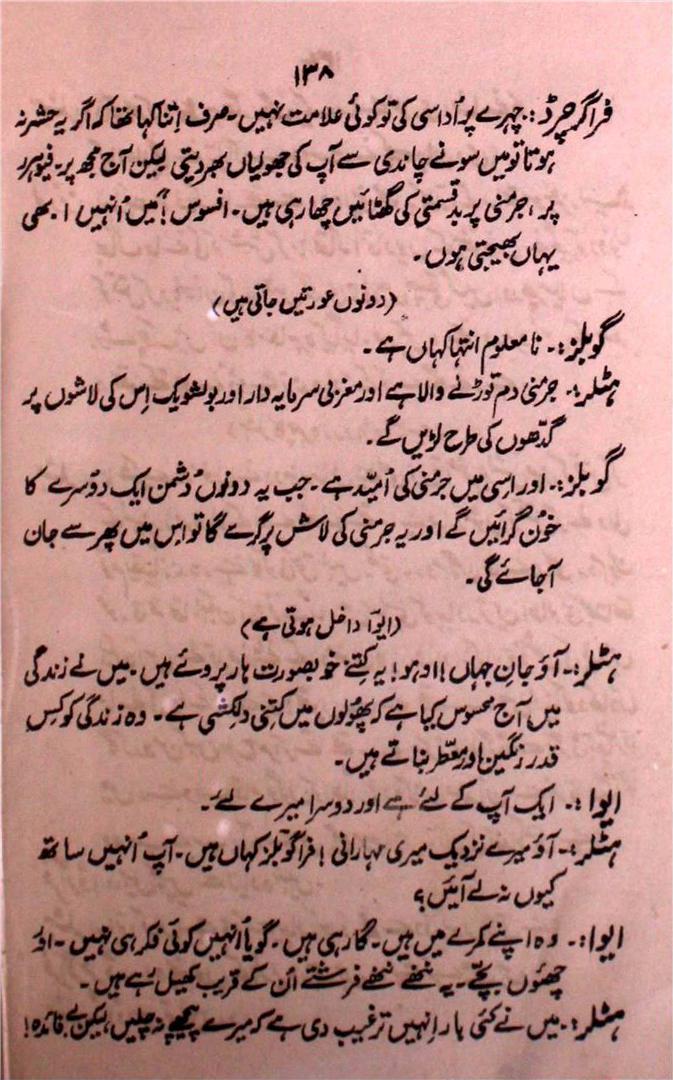 ۱۳۸
فراگرچرڈ:۔ چہرے پر اُداسی کی تو کوئی علامت نہیں۔ صرف اِتنا کہا تھا کہ اگر یہ حشر نہ
ہوتا تو میں سونے چاندی سے آپ کی جھولیاں بھر دیتی لیکن آج مجھ پر۔ فیوہرر
پر، جرمنی پر بدقسمتی کی گھٹائیں چھا رہی ہیں۔ افسوس! میں اُنہیں ابھی
یہاں بھیجتی ہوں۔
(دونوں عورتیں جاتی ہیں)
گوبلز:۔ نا معلوم انتہا کہاں ہے۔
ہٹلر:۔ جرمنی دم توڑنے والا ہے اور مغربی سرمایہ دار اور بولشویک اِس کی لاشوں پر
گدّھوں کی طرح لڑیں گے۔
گوبلز:۔ اور اسی میں جرمنی کی اُمیّد ہے۔ جب یہ دونوں دُشمن ایک دوسرے کا
خُون گرائیں گے اور یہ جرمنی کی لاش پر گرے گا تو اس میں پھر سے جان
آجائے گی۔
(ایوآ داخل ہوتی ہے)
ہٹلر:۔ آؤ جانِ جہاں! اوہو! یہ کِتنے خوبصورت ہار پروئے ہیں۔ میں نے زندگی
میں آج محسوس کیا ہے کہ پھُولوں میں کتنی دلکشی ہے۔ وہ زندگی کو کِس
قدر رنگین اور معطّر بناتے ہیں۔
ایوا:۔ ایک آپ کے لئے ہے اور دوسرا میرے لئے۔
ہٹلر:۔ آؤ میرے نزدیک میری مہارانی! فراگوبلز کہاں ہیں۔ آپ اُنہیں ساتھ
کیوں نہ لے آئیں؟
ایوا:۔ وہ اپنے کمرے میں ہیں۔ گا رہی ہیں۔ گویا اُنہیں کوئی فکر ہی نہیں۔ اور
چھئوں بچّے۔ یہ ننھے ننھے فرشتے اُن کے قریب کھیل رہے ہیں۔
ہٹلر:۔ میں نے کئی بار اِنہیں ترغیب دی ہے کہ میرے پیچھے نہ چلیں، لیکن بے فائدہ!